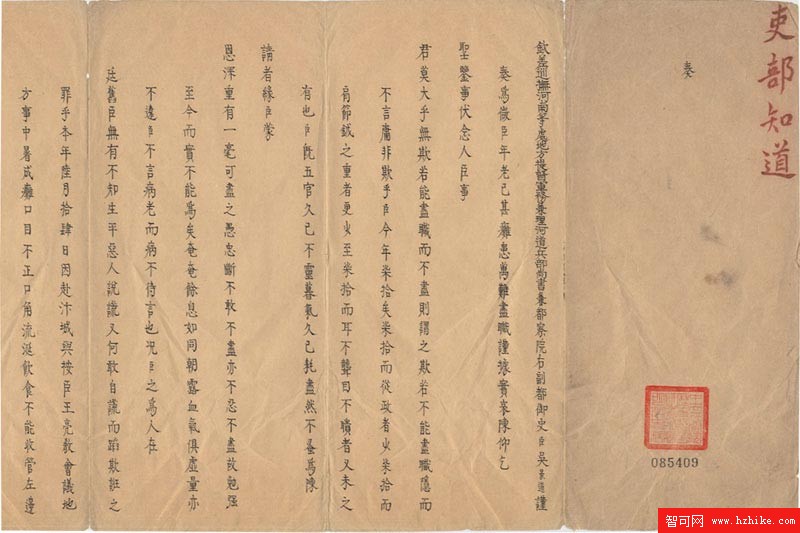 吏部知道
奏
085409
欽差巡撫河南等處地方提督軍務兼理河道兵部尚書兼都察院右副都御史臣吳景道謹
奏爲微臣年老已甚癱患萬難盡職謹據實哀陳仰乞
聖鑒事伏念人臣事
君莫大乎無欺若能盡職而不盡則謂之欺若不能盡職隱而
不言庸非欺乎臣今年柒拾矣柒拾而從政者少柒拾而
肩節鉞之重者更少至柒拾而耳不聾目不瞶者又未之
有也臣旣五官久已不靈暮氣久已耗盡然不亟爲陳
請者緣臣蒙
恩深重有一毫可盡之愚忠斷不敢不盡亦不忍不盡故勉强
至今而實不能爲矣奄奄餘息如同朝露血氣俱虛量亦
不遠臣不言病老而病不待言也况臣之爲人在
廷舊臣無有不知生平惡人説謊又何敢自謊而蹈欺誑之
罪乎本年陸月拾肆日因赴汴城與按臣王亮教會議地
方事中暑成癱口目不正口角流涎飲食不能收管左邊
智可网 www.hzhike.com